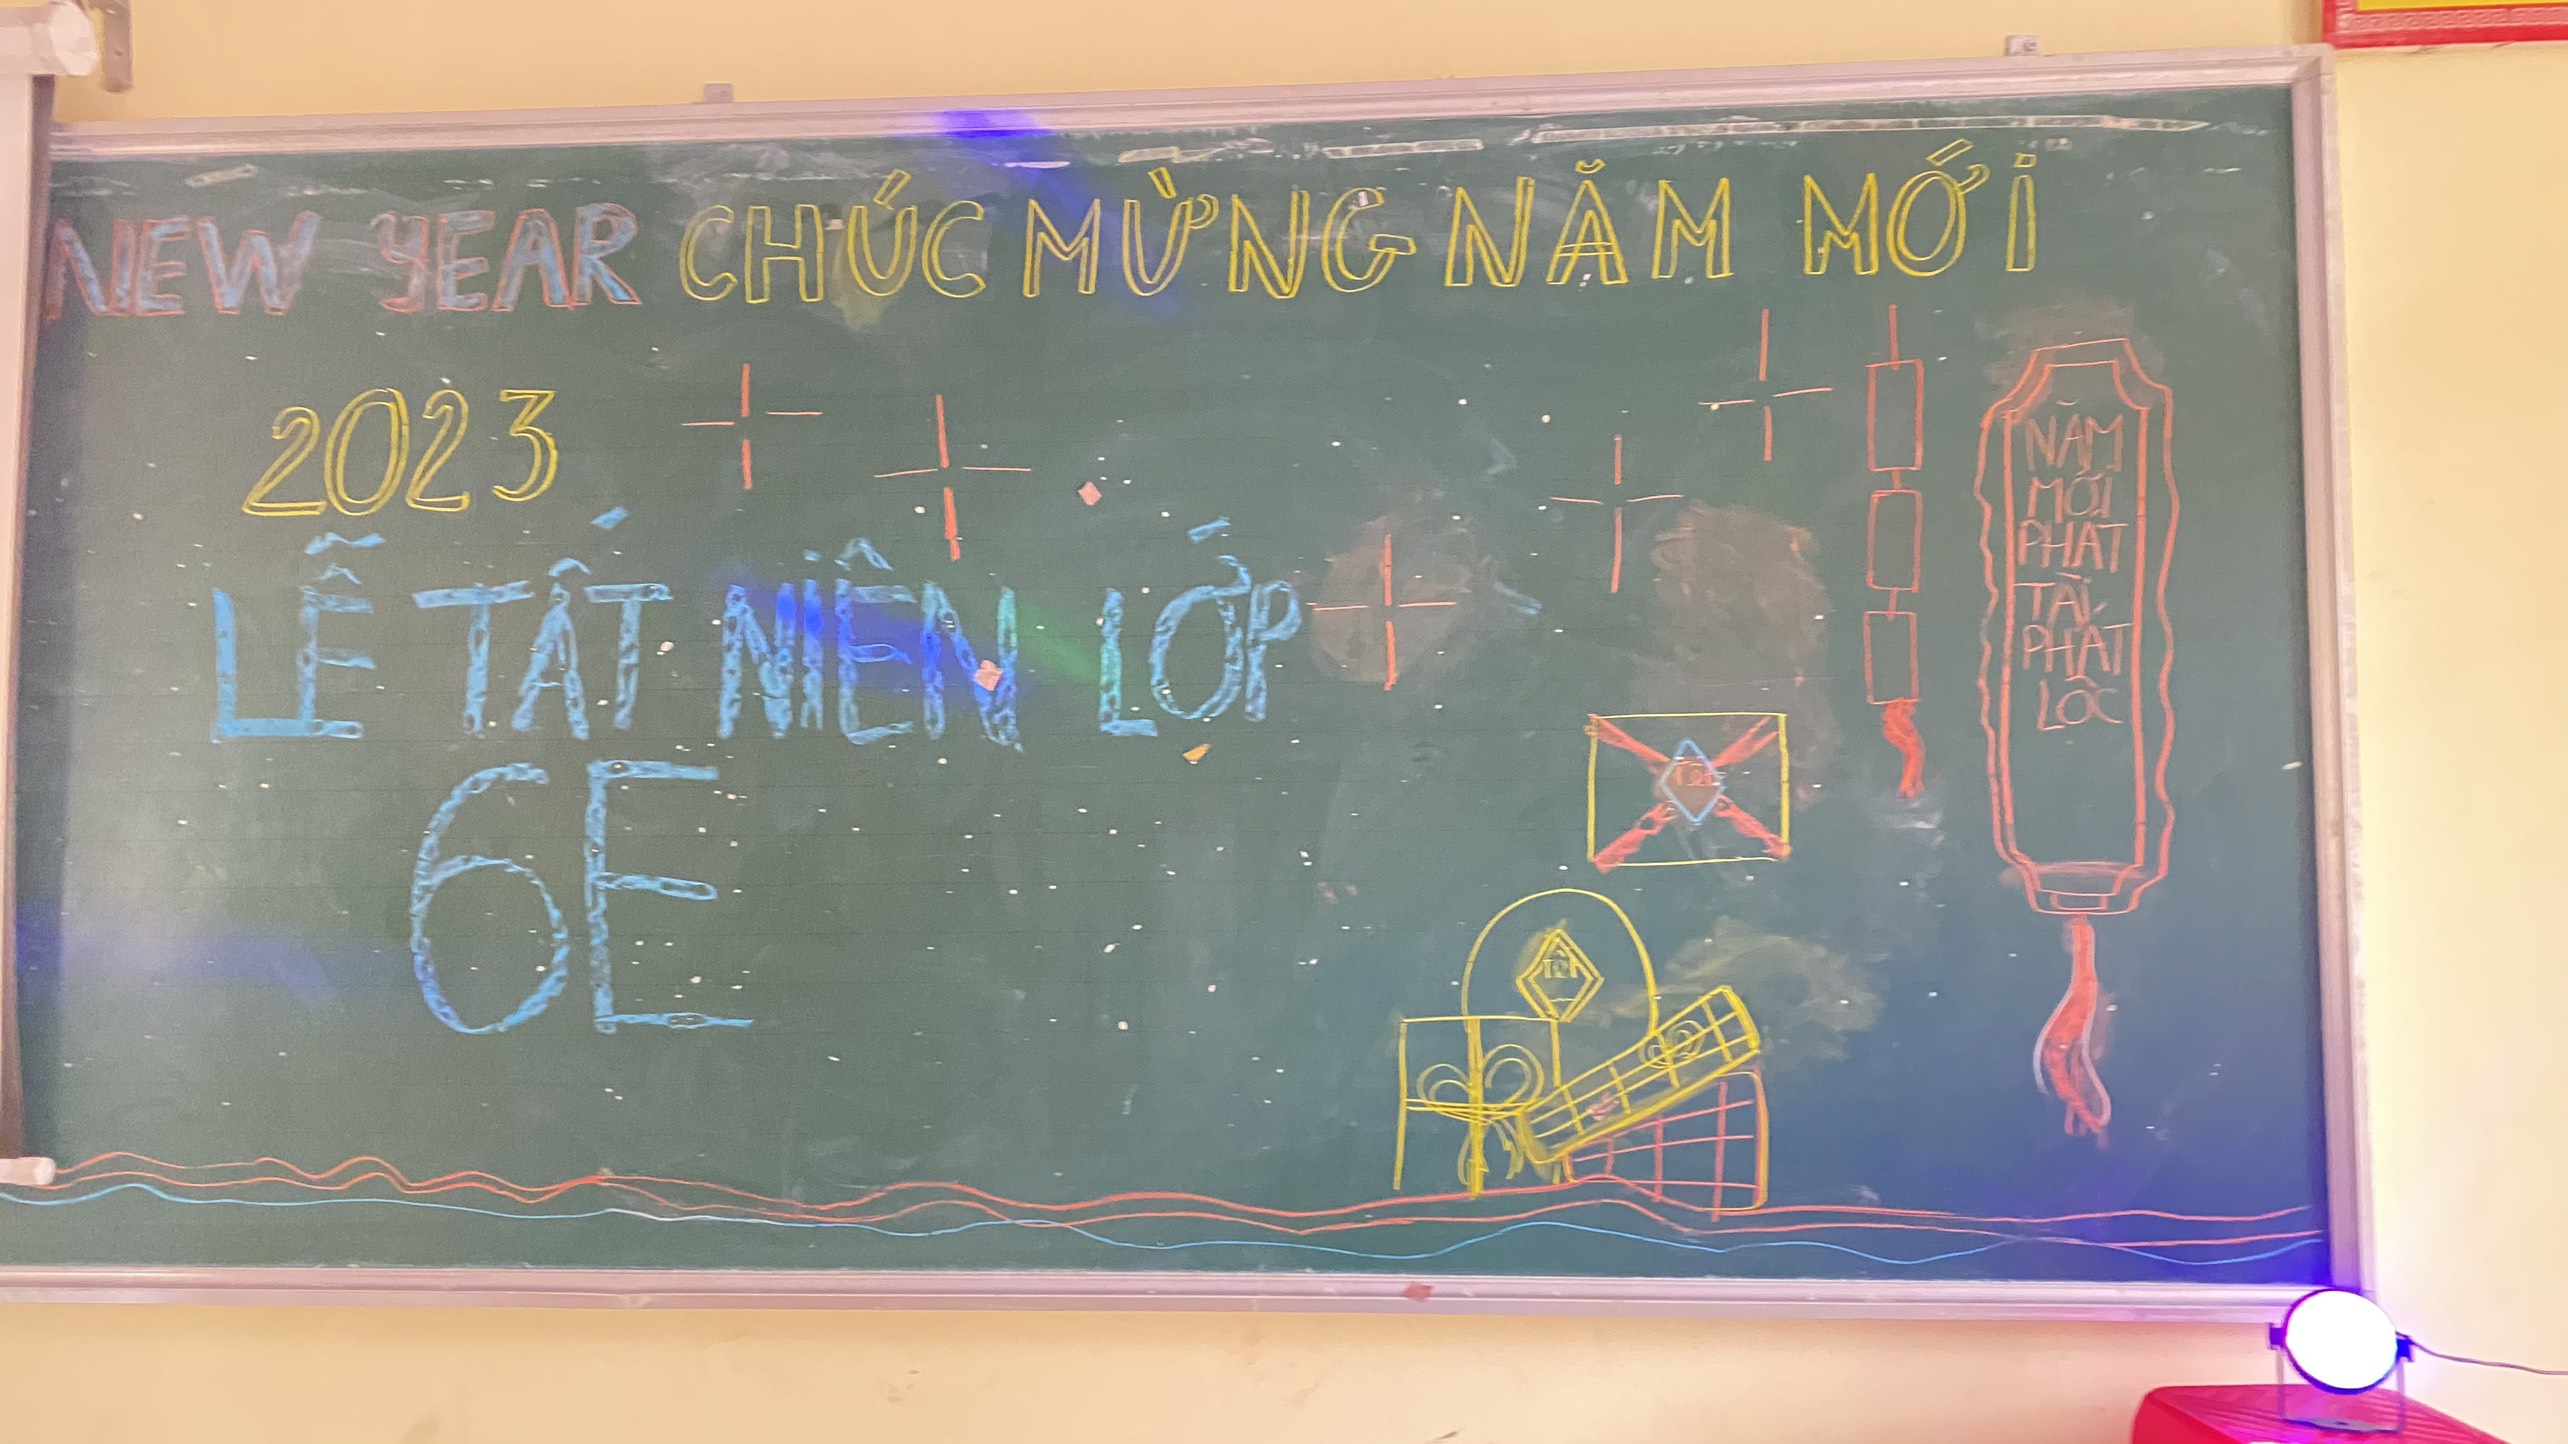 NEW YEAR CHÚC MỪNG NĂM MỚI
2023
LỄ TẤT NIÊN LỚP
6E
NĂM
MỚI
PHÁT
TÀI
PHÁT
LỘC
Tết
Tết